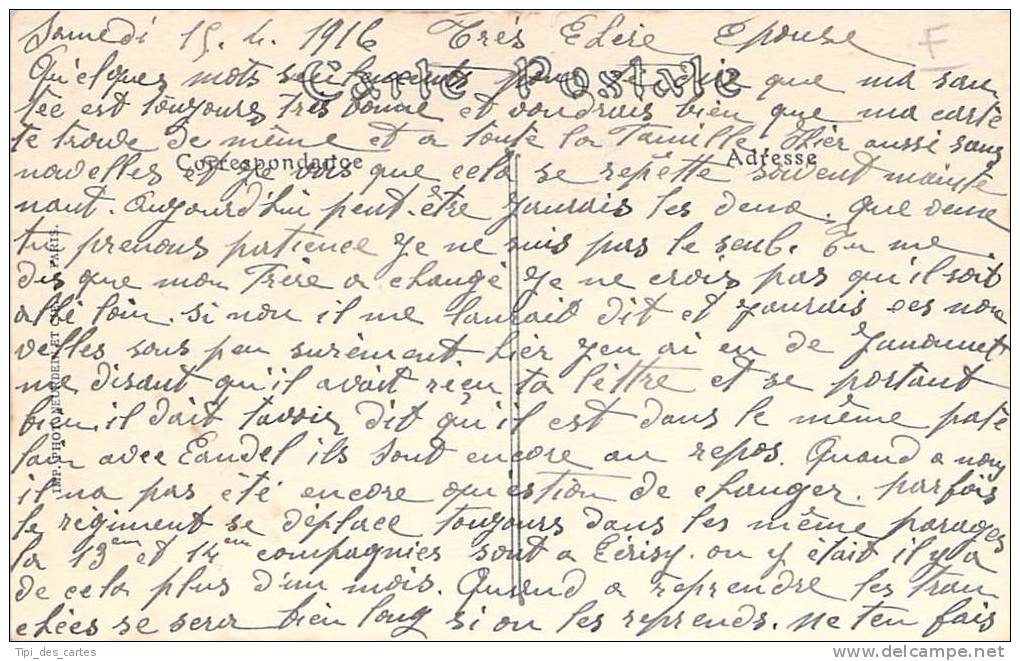 Samedi 15. 4. 1916 Très Chère Epouse
F
Carte Postale
Quelques mots seulement pour te dire que ma san
tée est toujours très bonne et voudrais bien que ma carte
te trouve de même et a toute la Famille. Hier aussi sans
Correspondance
Adresse
nouvelles et je vois que cela se repètte souvent mainte
nant. Aujourd'hui peut-être j'aurais les deux. Que veux
tu prenons patience je ne suis pas le seul. Tu me
dis que mon Frère a changé je ne crois pas qu'il soit
allé loin. si non il me l'aurait dit et j'aurais ces nou
velles sous peu surèment hier j'en ai eu de
me disant qu'il avait reçu ta lèttre et se portant
bien, il doit t'avoir dit qu'il est dans le même patè
lain avec ils sont encore au repos. Quand a nous
il na pas été encore question de changer. parfois
le règiment se déplace toujours dans les même parages
la 13em et 14em compagnies sont a Cerisy. on y était il y a
de cela plus d'un mois. Quand a reprendre les tran
chées se sera bien long si on les reprends. ne ten fais
IMP. PHOT. NEURDEIN ET CIE. PARIS.
Tipi_des_cartes
www.delcampe.net